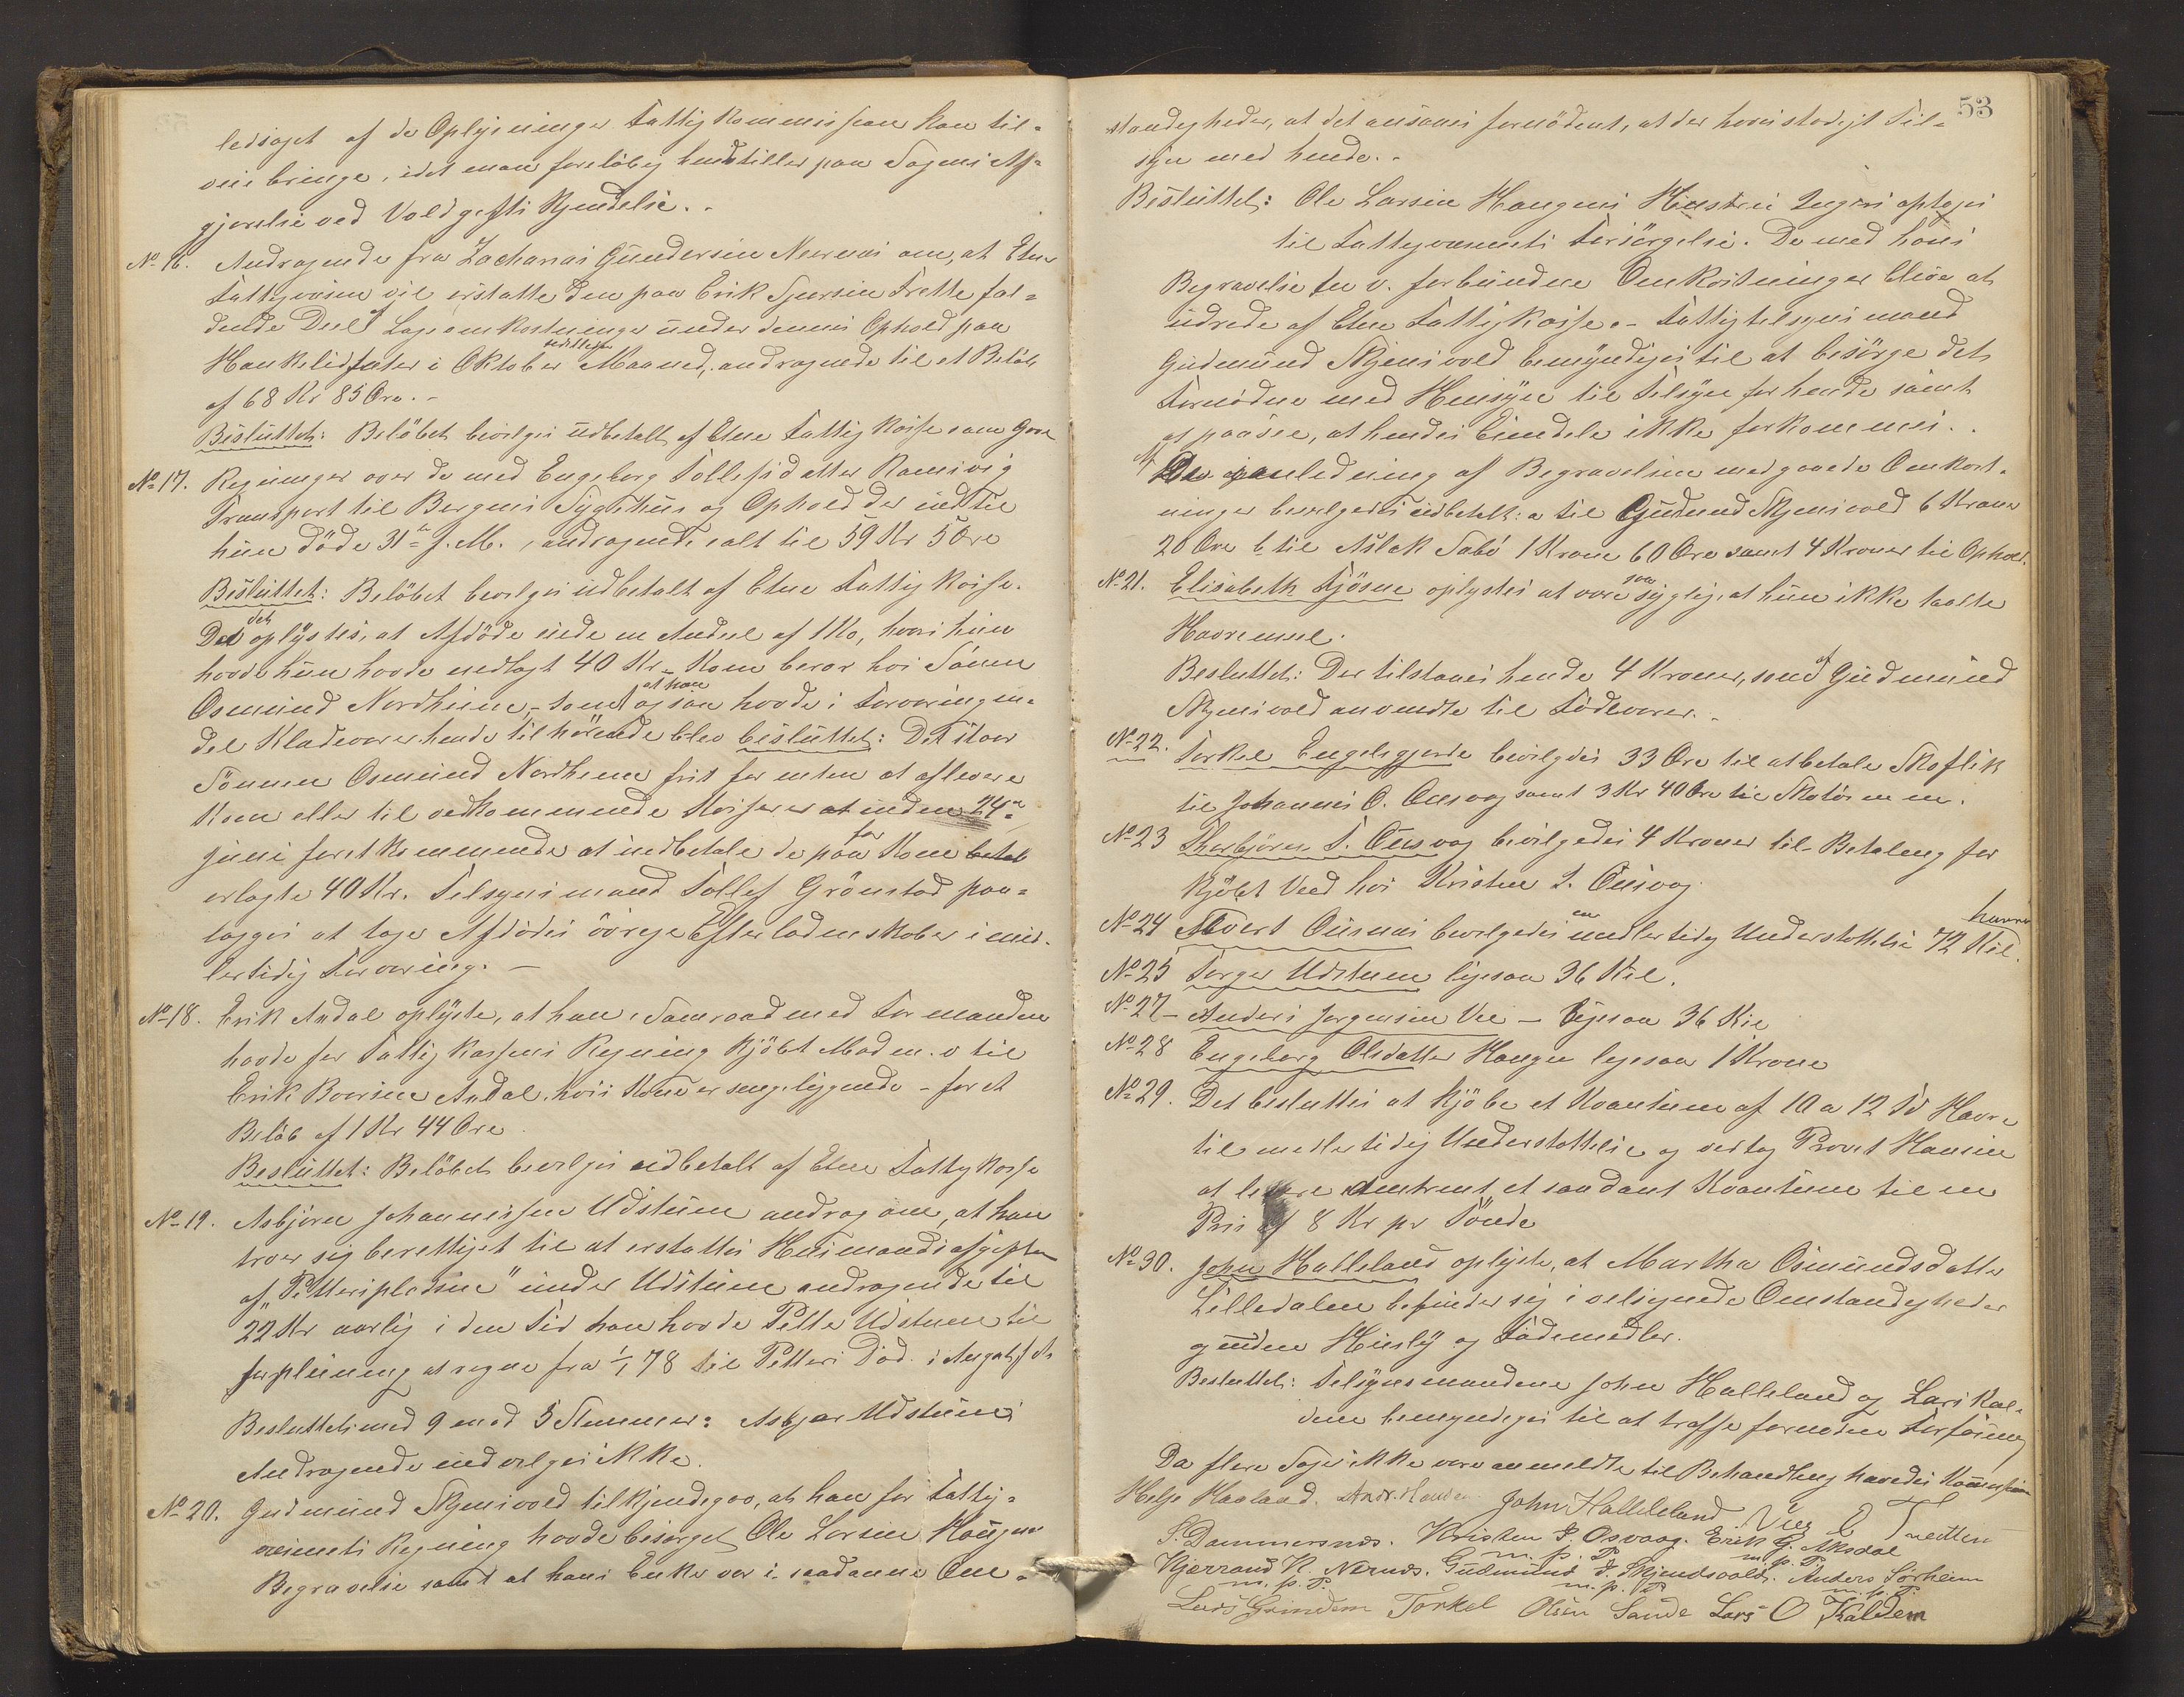 ledsaget af de Oplysninger Fattigkommissionen kan til-
veiebringe, idet man foreløbig henstiller paa Sagens Af-
gjørelse ved Voldgifts Kjendelse.
No 16. Andragende fra Zacharias Gundersen Nærnes om, at Etne
Fattigvæsen vil erstatte den paa Erik Sjursen Frette fal-
dende Deel af Lægeomkostninger under dennes Ophold paa
Haukelidsæter i Oktober Maaned, andragende til et Beløb
af 68 Kr 85 Øre. -
Besluttet: Beløbet bevilges udbetalt af Etne Fattigkasse som
No 17. Regninger over de med Engeborg Tollefsdatter Ramsvig
Transport til Bergens Sygehus og Ophold der indtil
hun døde 31te f. M., andragende ialt til 59 Kr 5 Øre
Besluttet: Beløbet bevilges udbetalt af Etne Fattigkasse.
Da det oplystes, at Afdøde eiede en Andeel af 1 Ko, hvori hun
havde hun havde nedlagt 40 Kr - Koen beror hos Sønnen
Osmund Nordheim, - samt at han ogsaa havde i Forvaring en
del Klædevarer hende tilhørende blev besluttet: Det staar
Sønnen Osmund Nordheim frit for enten at aflevere
Koen eller til vedkommende Kasserer at inden 24de
Juni førstkommende at indbetale de paa for Koen betal
erlagte 40 Kr. Tilsynsmand Tollef Grønstad paa-
lægges at tage Afdødes øvrige Efterladenskaber i mid-
lertidig Forvaring. -
No 18. Erik Axdal oplyste, at han i Samraad med Formanden
havde for Fattigkassens Regning kjøbt Mad m. v til
Erik Baarsen Axdal, hvis Kone er sengeliggende - for et
Beløb af 1 Kr 44 Øre.
Besluttet: Beløbet bevilges udbetalt af Etne Fattigkasse
No 19. Asbjørn Johannessen Udstuen androg om, at han
troer sig berettiget til at erstattes Husmandsafgiften
af "Petterspladsen" under Udstuen andragende til
22 Kr aarlig i den Tid han havde Petter Udstuen til
forpleining at regne fra 1/1 78 til Petters Død i August f A
Besluttet med 9 mod 5 Stemmer: Asbjør Udstuens
Andragende indvilges ikke.
No 20. Gudmund Skjensvold tilkjendegav, at han for Fattig-
væsenets Regning havde besørget Ole Larsen Haugens
Begravelse samt at hans Enke var i saadanne Om-
53
stændigheder, at det ansaaes fornødent, at der havdes stadigt Til-
syn med hende. -
Besluttet: Ole Larsen Haugens Hustru Ingeri optages
til Fattigvæsenets Forsørgelse. De med hans
Begravelse m v. forbundne Omkostninger blive at
udrede af Etne Fattigkasse. - Fattigtilsynsmand
Gudmund Skjensvold bemyndiges til at besørge det
Fornødne med Hensyn til Tilsyn for hende samt
at paasee, at hendes Eiendele ikke forkommes.
Af De i anledning af Begravelsen medgaaede Omkost-
ninger bevilgedes udbetalt: a til Gudmund Skjensvold 6 Kroner
20 Øre b til Aslak Sabø 1 Krone 60 Øre samt 4 Kroner til Ophold.
No 21. Elisabeth Tjøsne oplystes at være saa sygelig, at hun ikke taalte
Havremeel.
Besluttet: Der tilstaaes hende 4 Kroner, som af Gudmund
Skjensvold anvendes til Fødevarer. -
No 22. Torkel Engelsgjerde bevilgdes 33 Øre til at betale Skoflik
til Johannes O. Ousvog samt 3 Kr 40 Øre til Skotøi m m.
No 23 Thorbjørn T. Ousvog bevilgedes 4 Kroner til Betaling for
kjøbt Ved hos Kristen I. Ousvog.
No 24 Sivert Ousnes bevilgedes en midlertidig Understøttelse 72 Kil. havre
No 25 Torger Udstuen ligesaa 36 Kil.
No 27 - Anders Jørgensen Vie - ligesaa 36 Kil
No 28 Engeborg Olsdatter Haugen ligesaa 1 Krone
No 29. Det besluttes at kjøbe et Kvantum af 10 a 12 Td Havre
til midlertidig Understøttelse og vedtog Provst Hansen
at levere omtrent et saadant Kvantum til en
Pris af 8 Kr pr Tønde
No 30. John Halleland oplyste, at Martha Osmundsdatter
Lilledalen befinder sig i velsignede Omstændigheder
og uden Husly og Fødemidler.
Besluttet: Tilsynsmændene John Halleland og Lars Kal-
dem bemyndiges til at træffe fornøden Forføining
Da flere Sager ikke vare anmeldte til Behandling hævedes Kommissionen
Helge Haaland. Andr. Hansen John Halleleland
S. Dammersnes. Kristen I. Osvaag. Erik G. Aksdal
m. p. P. m. p. P.
Kjærrand K. Nernes. Gudmund J. Skjendsvold. Anders Sørheim
m. p. P. m. p. P. m. p. P.
Lars Grindem Torkel Olsen Sande Lars O Kaldem